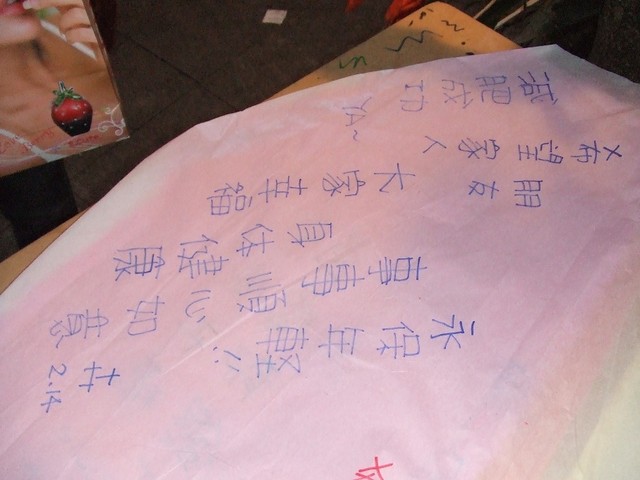 減肥成功 YA~
希望家人
朋友 大家幸福
身体健康
事事順心如意
永保年輕!!
卉
2.14